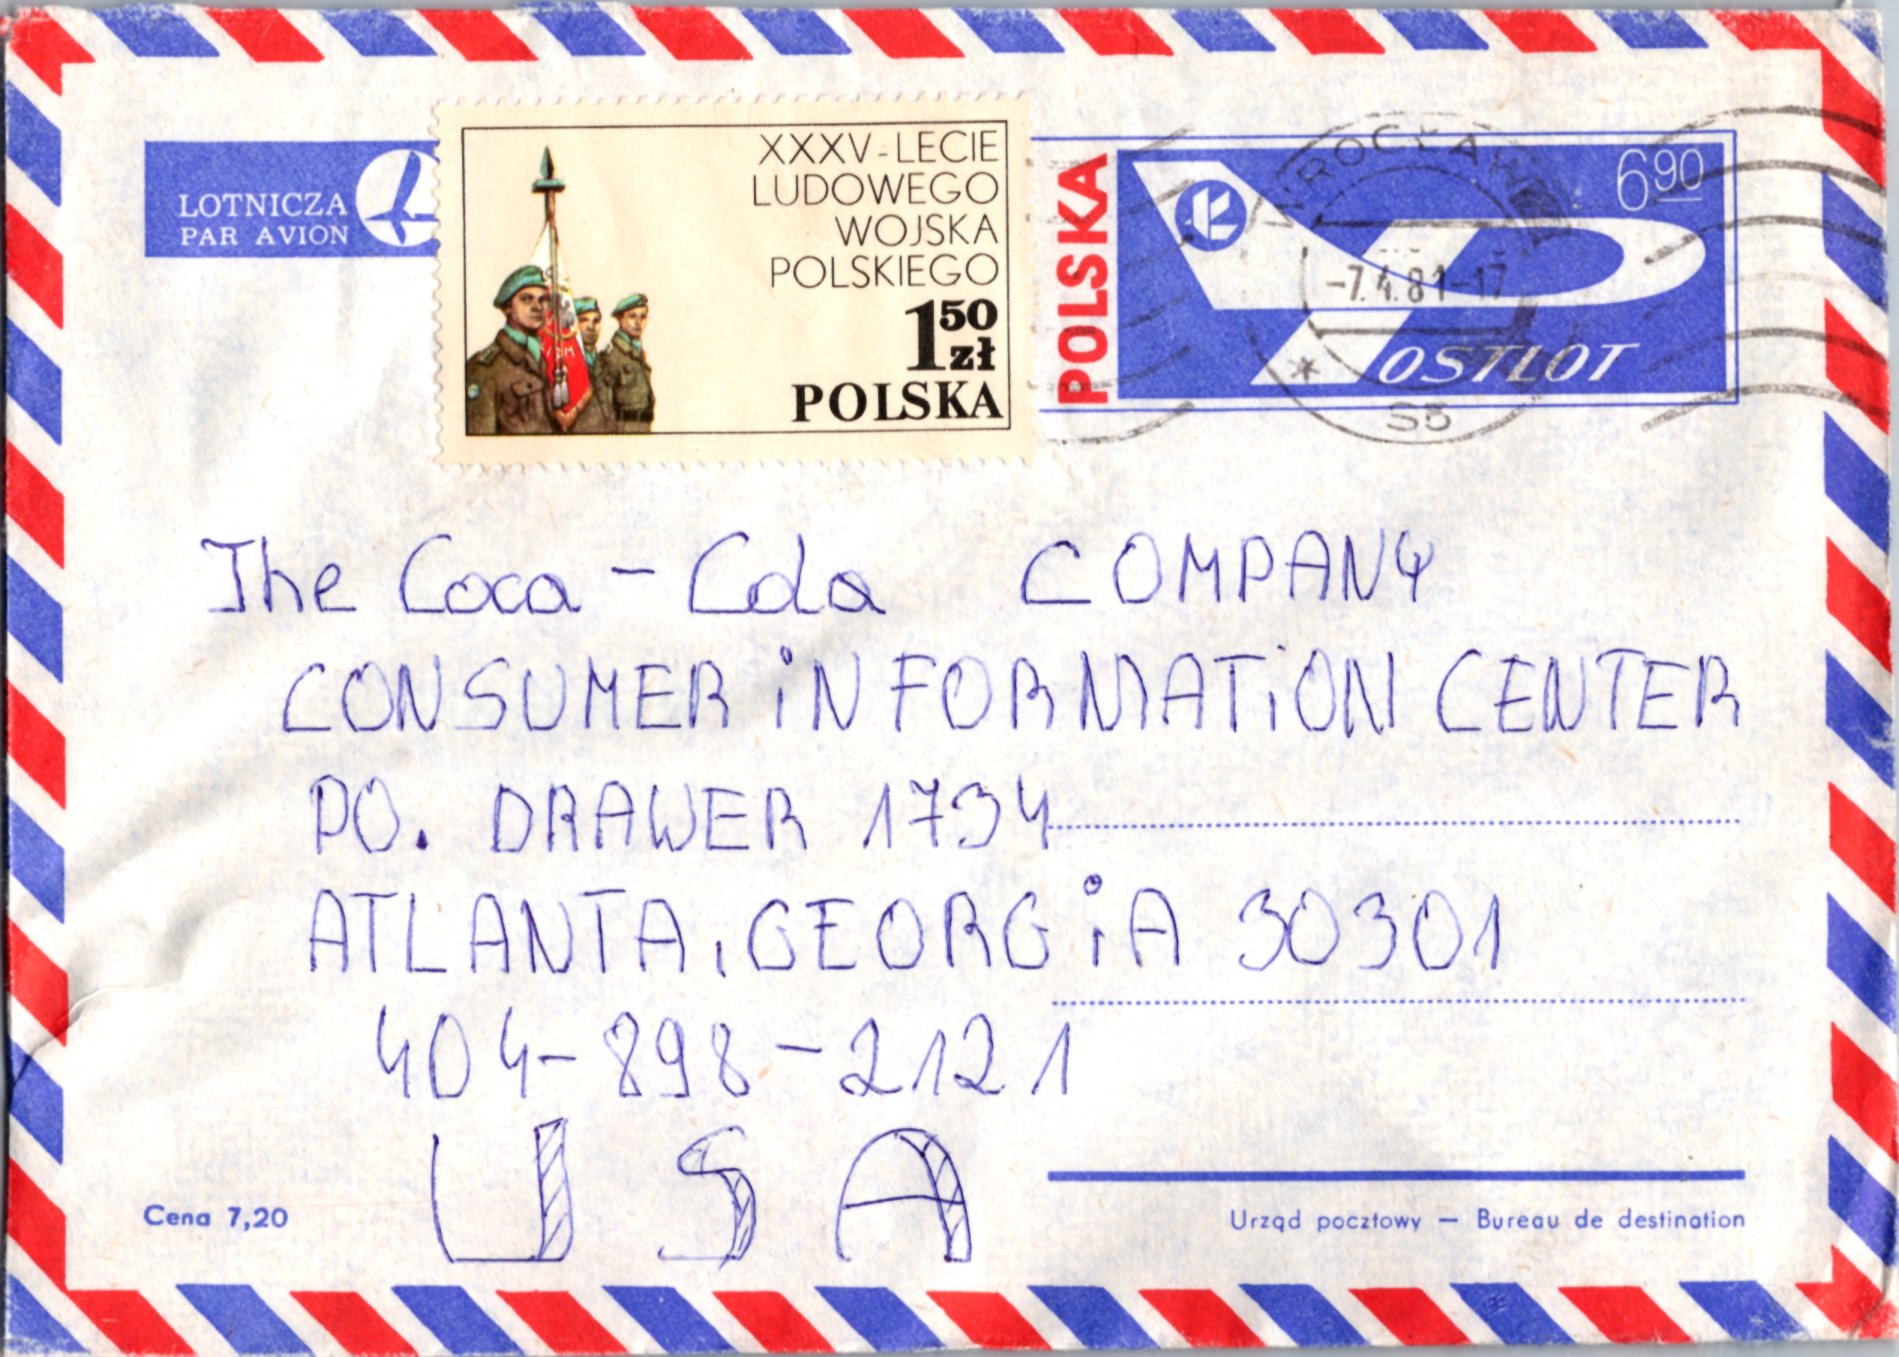 LOTNICZA
PAR AVION
XXXV-LECIE
LUDOWEGO
WOJSKA
POLSKIEGO
1 50 zł
POLSKA
POLSKA
6 90
POSTLOT
WROCŁAW
-7.4.81-17
* S5
The Coca-Cola COMPANY
CONSUMER iNFORMATiON CENTER
PO. DRAWER 1734
ATLANTA, GEORGiA 30301
404-898-2121
USA
Cena 7,20
Urząd pocztowy — Bureau de destination